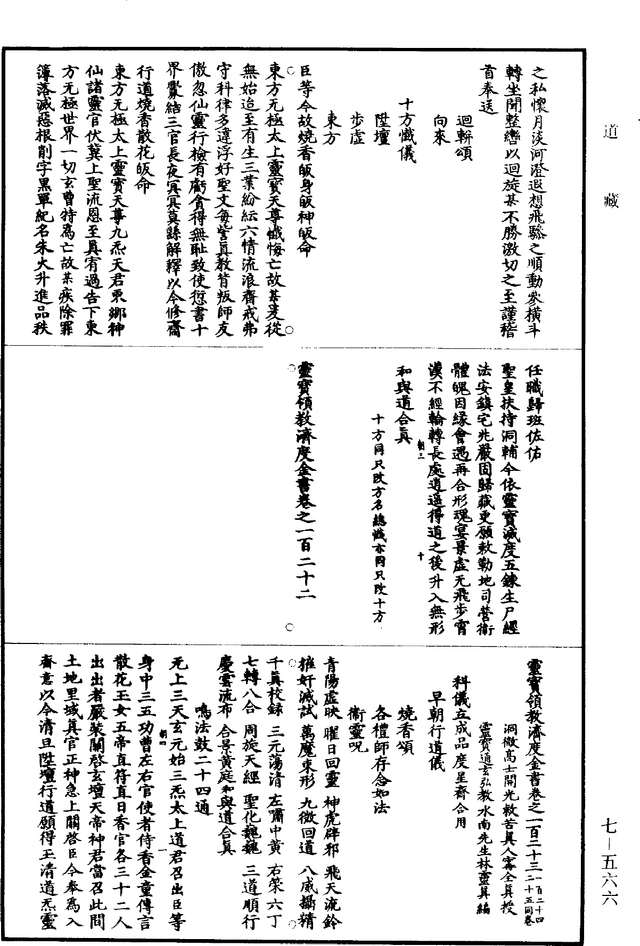 道藏
之私懷月淡河澄遐想飛駼之順動參橫斗
轉坐閱整轡以迴旋某不勝激切之至謹稽
首奉送
迴軿頌
向來
十方懺儀
陞壇
步虛
東方
臣等今故燒香皈身皈神皈命
東方无極太上靈寶天尊懺悔亡故某爰從
無始迨至有生三業紛紜六情流浪齋戒弗
守科律多違浮好聖文每訾真教背叛師友
傲忽仙靈行檢有虧貪得無恥致使愆書十
界釁結三官長夜冥冥莫繇解釋以今修齋
行道燒香散花皈命
東方无極太上靈寶天尊九炁天君東鄉神
仙諸靈官伏冀上聖流恩至真宥過告下東
方无極世界一切玄曹特為亡故某疾除罪
簿落滅惡根削字黑單紀名朱火升進品秩
任職歸班佐佑
聖皇扶持洞輔今依靈寶滅度五鍊生尸經
法安鎮宅兆嚴固歸藏更願敕勒地司營衛
體魄因緣會遇再合形魂宴景虛无飛步霄
漢不經輪轉長處逍遥得道之後升入無形
和與道合真
十方同只改方名總懺亦同只改十方
靈寶領教濟度金書卷之一百二十二
靈寶領教濟度金書卷之一百二十三一百二十四二十五同卷
洞微高士開光救苦真人甯全真授
靈寶通玄弘教水南先生林靈真編
科儀立成品度星齋合用
早朝行道儀
燒香頌
各禮師存念如法
衛靈呪
青陽虛映 曜日回靈 神虎辟邪 飛天流鈴
摧奸滅試 萬魔束形 九微回道 八威攝精
千真校錄 三元蕩清 左嘯中黃 右策六丁
七轉八合 周旋天經 聖化巍巍 三道順行
慶雲流布 合景黃庭 和與道合真
鳴法鼓二十四通
无上三天玄元始三炁太上道君召出臣等
身中三五功曹左右官使者侍香金童傳言
散花玉女五帝直符直日香官各三十二人
出出者嚴裝關啓玄壇天帝神君當召此間
土地里域真官正神急上關啓臣今奉為入
齋意以今清旦陞壇行道願得玉清道炁靈
七—五六六